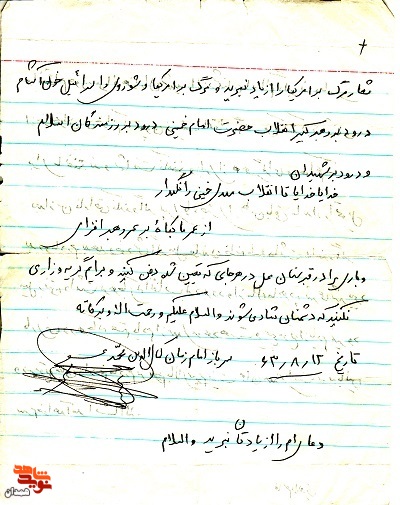 شعار مرگ بر امریکا را از یاد نبرید و مرگ بر امریکا و شوروی و اسرائیل خون آشام
درود بر رهبر کبیر انقلاب حضرت امام خمینی درود بر رزمندگان اسلام
و درود بر شهیدان
خدایا خدایا تا انقلاب مهدی خمینی را نگهدار
از عمر ما بکاه بر عمر رهبر افزای
و مرا در قبرستان محل در هرجای که تعیین شد دفن کنید و برایم گریه و زاری
نکنید که دشمنان شاد می شوند والسلام علیکم و رحمت الله و برکاته
تاریخ ۶۳/۸/۱۲ سرباز امام زمان کمال الدین محمدی
دعای امام را از یادتان نبرید والسلام
نوید شاهد